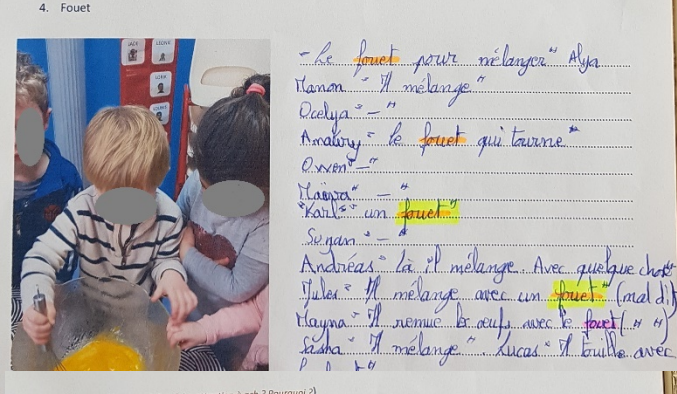 4. Fouet
JACK
LEONIE
- Le fouet pour mélanger" Alya
Manon " Il mélange "
Ocelya " — "
Amaury " le fouet qui tourne "
Owen " — "
" — "
Karl " un fouet "
Suzan " — "
Andréas " Là il mélange. Avec quelque chose
Jules " Il mélange avec un fouet " (mal dit
Mayna " Il remue les oeufs avec le fouet ( " "
Sasha " Il mélange ". Lucas " Il fouille avec
? Pourquoi ?)